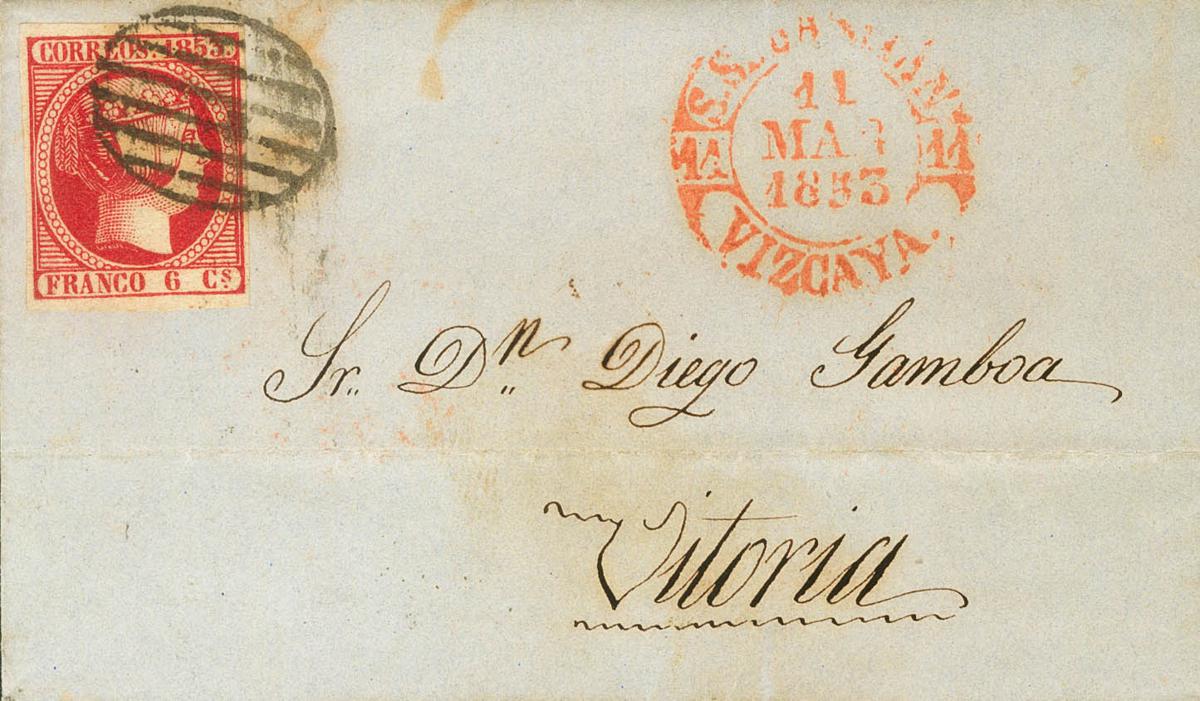 CORREOS. 1853.
FRANCO 6 Cs
11
MAR
1853
11
VIZCAYA.
Sr. Dn. Diego Gamboa
Vitoria